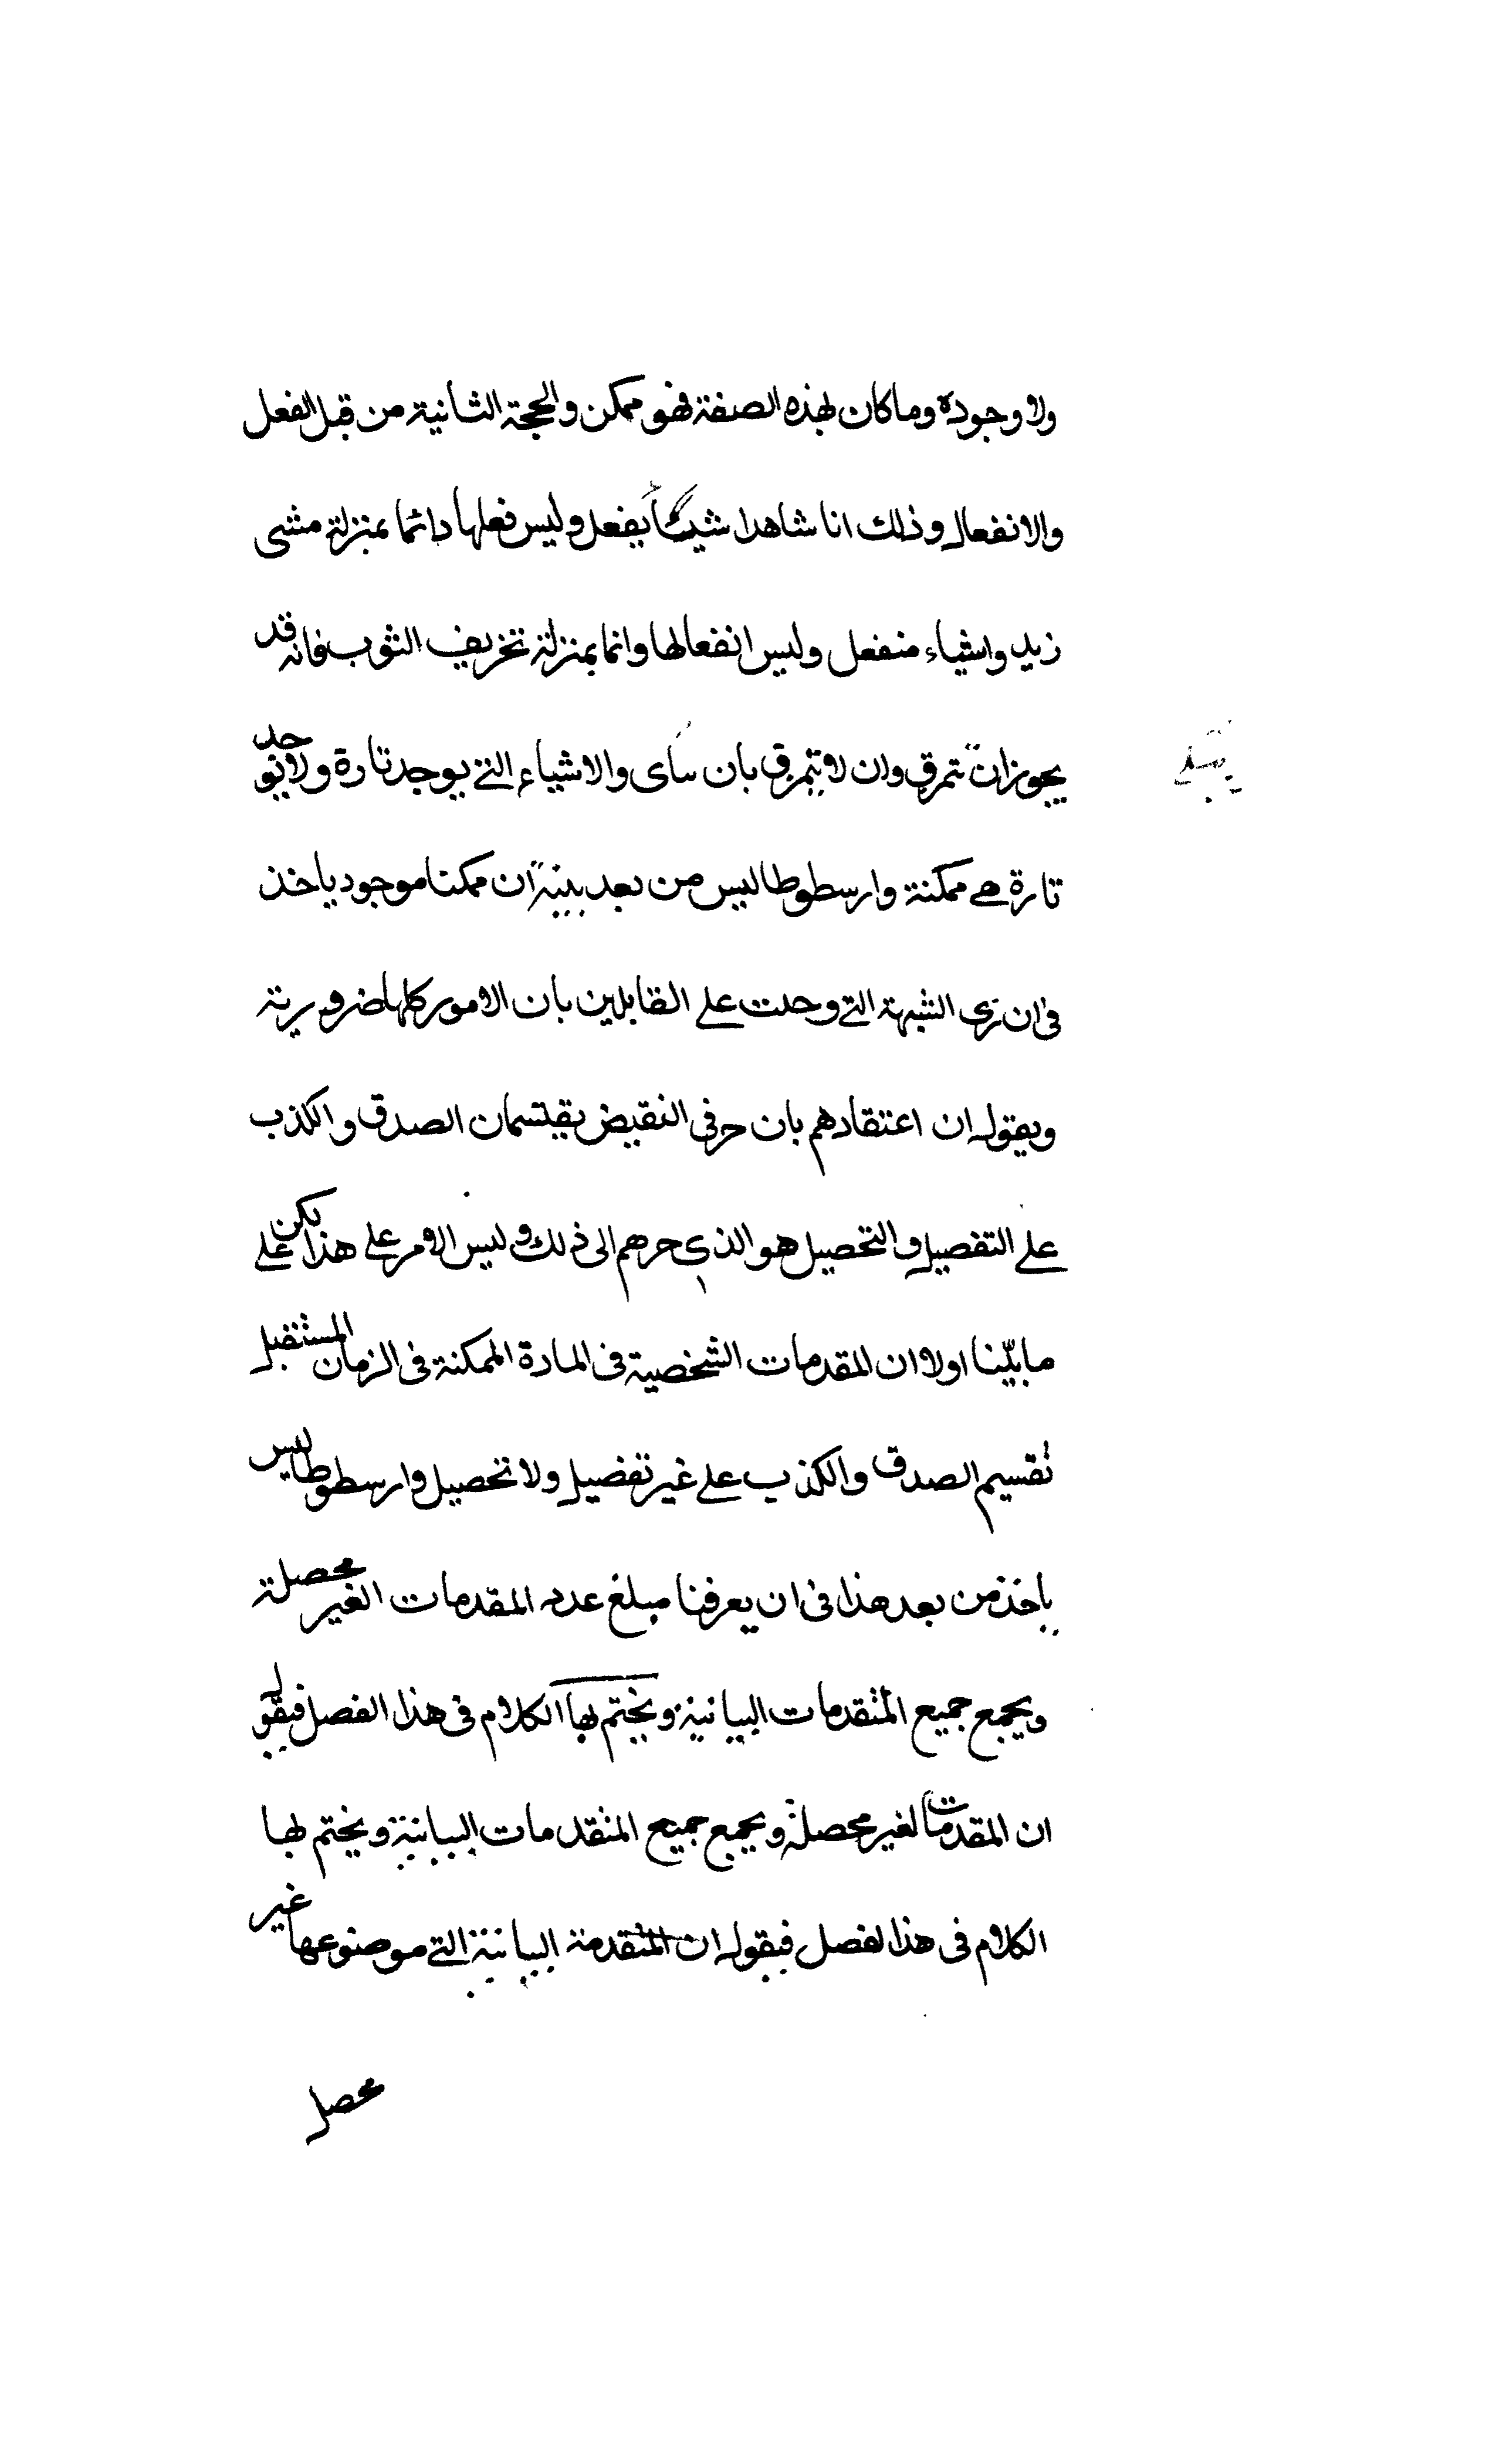 ولا وجوده وما كان لهذه الصفة فهو ممكن والحجة الثانية من قبل الفعل
والانفعال وذلك انا شاهدا شيئاً يفعل وليس فعلها دائما بمنزلة مشى
زيد واشياء منفعل وليس انفعالها وانما بمنزلة تخريف الثوب فانه قد
يجوز ان تتمرق وان لا يتمرق بان والاشياء التي يوجد تارة ولا يوجد
تارة هي ممكنة وارسطوطاليس من بعد بينة ان ممكنا موجود ياخذ
في ان نرى الشبهة التي وحلت على القايلين بان الامور كلها ضرورية
ويقول ان اعتقادهم بان حرفى النقيض يقتسمان الصدق والكذب
على التفصيل والتحصيل هو الذي حرهم الى ذلك وليس الامر على هذا لكن على
ما بيّنا اولا ان المقدمات الشخصية في المادة الممكنة في الزمان المستقبل
تقسيم الصدق والكذب على غير تفصيل ولا تحصيل وارسطوطاليس
ياخذ من بعد هذا في ان يعرفنا مبلغ عدد المقدمات الغير محصلة
ويجمع جميع المتقدمات البيانية ويختم بها الكلام في هذا الفصل فيقول
ان المقدمات لغير محصلة ويجمع جميع المتقدمات البيانية ويختم لها
الكلام في هذا لفصل فيقول ان المتقدمة البيانية التي موضوعها غير
محصل